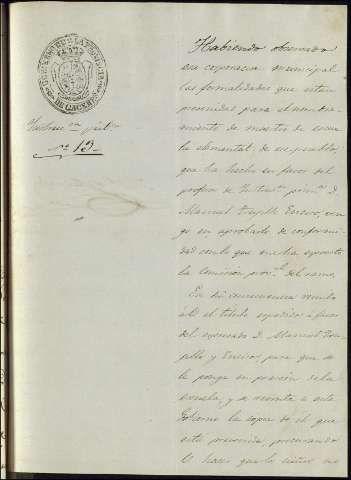 GOBIERNO DE LA PROVINCIA
DE CACERES
Instruc.on púb.ca
nº 13.
Habiendo observado
esa corporacion municipal
las formalidades que estan
prevenidas para el nombra-
miento de maestro de escue
la elemental de ese pueblo,
que ha hecho en favor del
profesor de Instruc.on prim.a D.
Manuel Trujillo
go en aprobarlo de conformi
dad con lo que me ha espuesto
la Comision prov.al del ramo.
En su consecuencia remito
á V. el titulo espedido a favor
del espresado D. Manuel Tru
jillo y para que se
le ponga en posesion de la
escuela, y se remita a este
Gobierno la copia de él que
está prevenida, procurando
V. hacer que los niños no